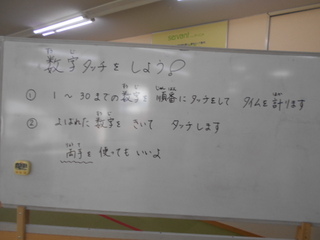 数字タッチをしよう
① 1～30までの数字を順番にタッチをして タイムを計ります
② よばれた数字をきいて タッチします
両手を使ってもいいよ